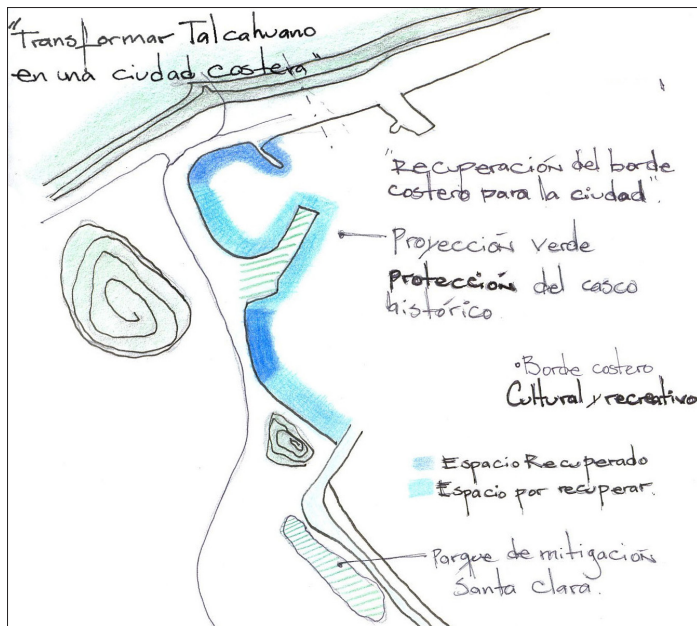 "Transformar Talcahuano
en una ciudad costera"
"Recuperación del borde
costero para la ciudad".
Proyección verde
Protección del casco
histórico
Borde costero
Cultural y recreativo
Espacio Recuperado
Espacio por recuperar.
Parque de mitigación
Santa Clara.